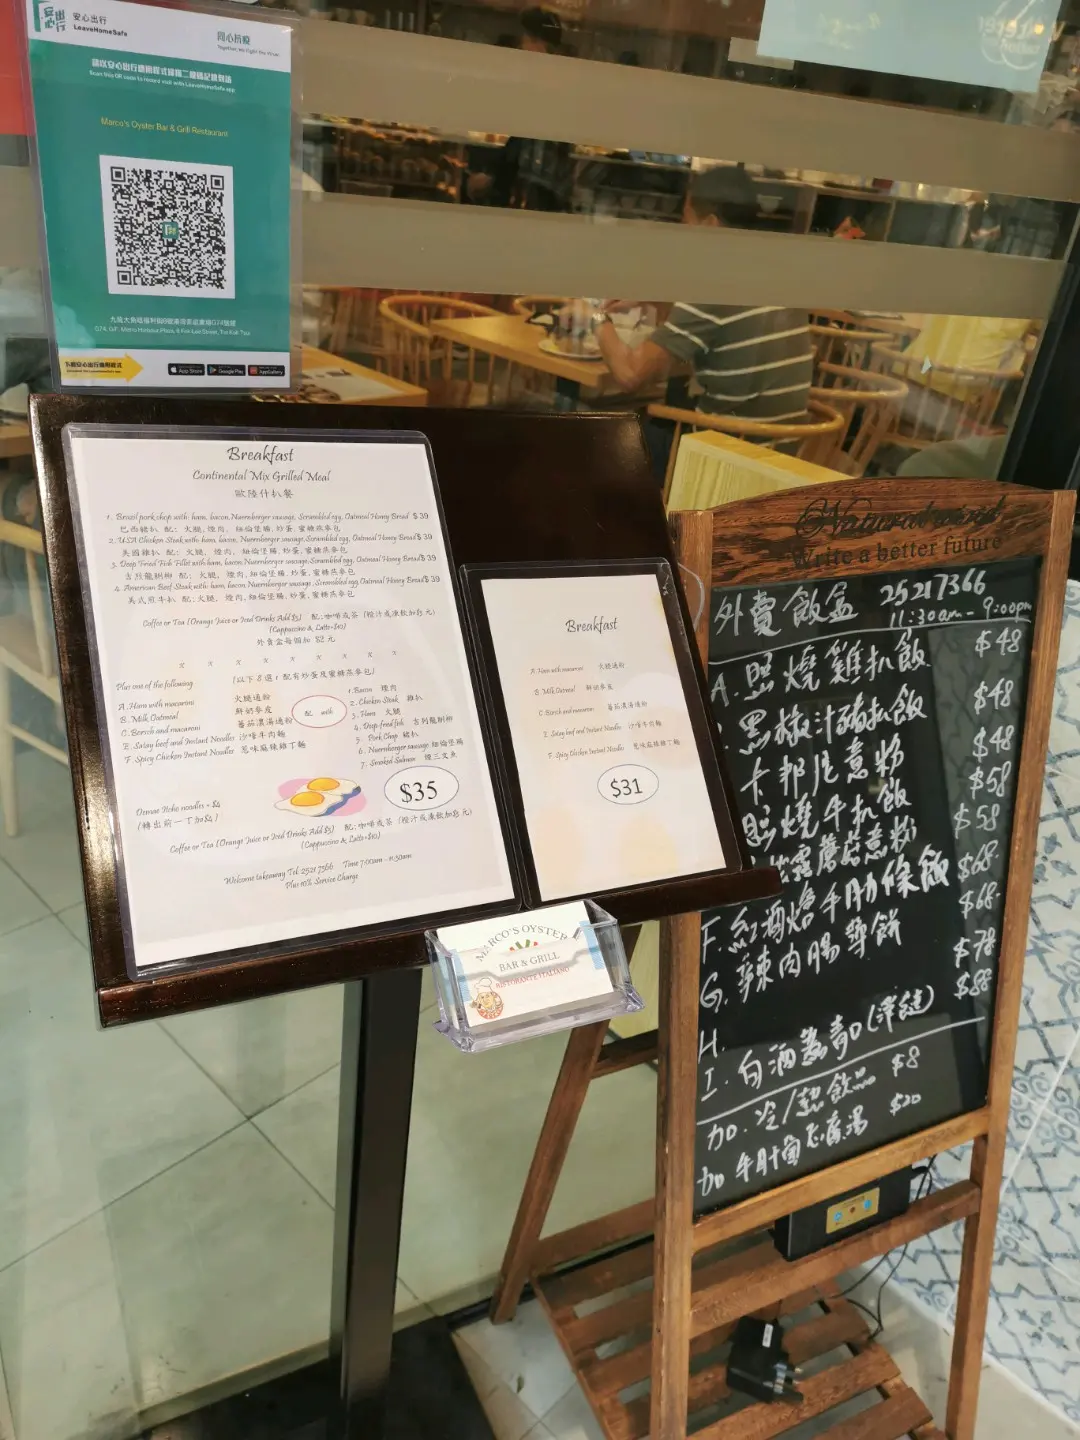 安心出行
LeaveHomeSafe
同心抗疫
Together, We Fight the Virus!
請以安心出行應用程式掃描二維碼記錄到訪
Scan this QR code to record visit with LeaveHomeSafe app
Marco's Oyster Bar & Grill Restaurant
G74, G/F, Metro Harbour Place, 8 Fuk Lee Street, Tai Kok Tsui
下載安心出行應用程式
App Store
Google Play
AppGallery
Breakfast
Continental Mix Grilled Meal
歐陸什扒餐
1. Brazil pork chop with: ham, bacon, Nuernberger sausage, Scrambled egg, Oatmeal Honey Bread $ 39
巴西豬扒 配：火腿, 煙肉, 紐倫堡腸, 炒蛋, 蜜糖燕麥包
2. USA Chicken Steak with: ham, bacon, Nuernberger sausage, Scrambled egg, Oatmeal Honey Bread $ 39
美國雞扒 配：火腿, 煙肉, 紐倫堡腸, 炒蛋, 蜜糖燕麥包
3. Deep Fried Fish Fillet with: ham, bacon Nuernberger sausage, Scrambled egg, Oatmeal Honey Bread $ 39
吉烈龍脷柳 配：火腿, 煙肉, 紐倫堡腸, 炒蛋, 蜜糖燕麥包
4. American Beef Steak with: ham, bacon Nuernberger sausage, Scrambled egg, Oatmeal Honey Bread $ 39
美式煎牛扒, 配：火腿, 煙肉, 紐倫堡腸, 炒蛋, 蜜糖燕麥包
Coffee or Tea (Orange Juice or Iced Drinks Add $5) 配: 咖啡或茶 (橙汁或凍飲加5元)
(Cappuccino & Latte+$10)
外賣盒每個加 $2 元
x x x x x x x x x
Plus one of the following (以下 8 選 1 配有炒蛋及蜜糖燕麥包)
A. Ham with macaroni 火腿通粉
B. Milk Oatmeal 鮮奶麥皮
C. Borsch and macaroni 蕃茄濃湯通粉
E. Satay beef and Instant Noodles 沙嗲牛肉麵
F. Spicy Chicken Instant Noodles 惹味麻辣雞丁麵
配 with
1. Bacon 煙肉
2. Chicken Steak 雞扒
3. Ham 火腿
4. Deep-fried fish 吉列龍脷柳
5. Pork Chop 豬扒
6. Nuernberger sausage 紐倫堡腸
7. Smoked Salmon 煙三文魚
$35
Demae Itcho noodles + $4
(轉出前一丁加$4)
Coffee or Tea (Orange Juice or Iced Drinks Add $5) 配: 咖啡或茶 (橙汁或凍飲加5元)
(Cappuccino & Latte+$10)
Welcome takeaway Tel: 2521 7366 Time 7:00am - 11:30am
Plus 10% Service Charge
Breakfast
A. Ham with macaroni 火腿通粉
B. Milk Oatmeal 鮮奶麥皮
C. Borsch and macaroni 蕃茄濃湯通粉
E. Satay beef and Instant Noodles 沙嗲牛肉麵
F. Spicy Chicken Instant Noodles 惹味麻辣雞丁麵
$31
MARCO'S OYSTER
BAR & GRILL
RISTORANTE ITALIANO
Natural wood
Write a better future
外賣飯盒 25217366
11:30am - 9:00pm
A. 照燒雞扒飯 $48
黑椒汁豬扒飯 $48
卡邦尼意粉 $48
照燒牛扒飯 $58
蘑菇意粉 $58
F. 紅酒燴牛肋條飯 $68
G. 辣肉腸薄餅 $68
H. $78
I. 白酒煮青口 $88
加. 冷/熱飲品 $8
加 $20